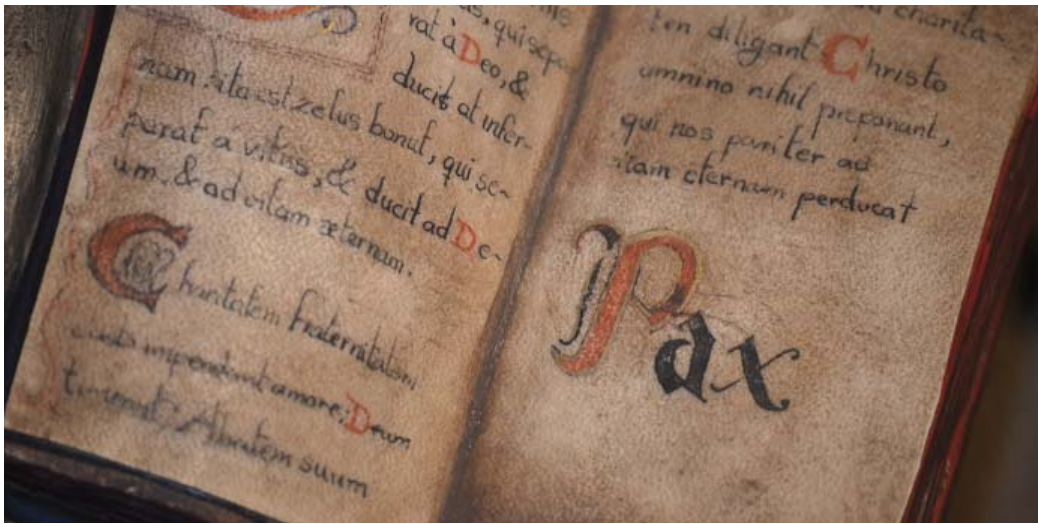 quisepa
rat à Deo, &
ducit at infer-
nam. ita est zelus bonut, qui se-
parat a vitus, & ducit ad De-
um. & ad vitam æternam.
Charitatem fraternitatem
impendant amore; Deum
timeant; Abbatem suum
charita-
ten diligant Christo
omnino nihil preponant,
qui nos pariter ad
vitam eternam perducat
Pax